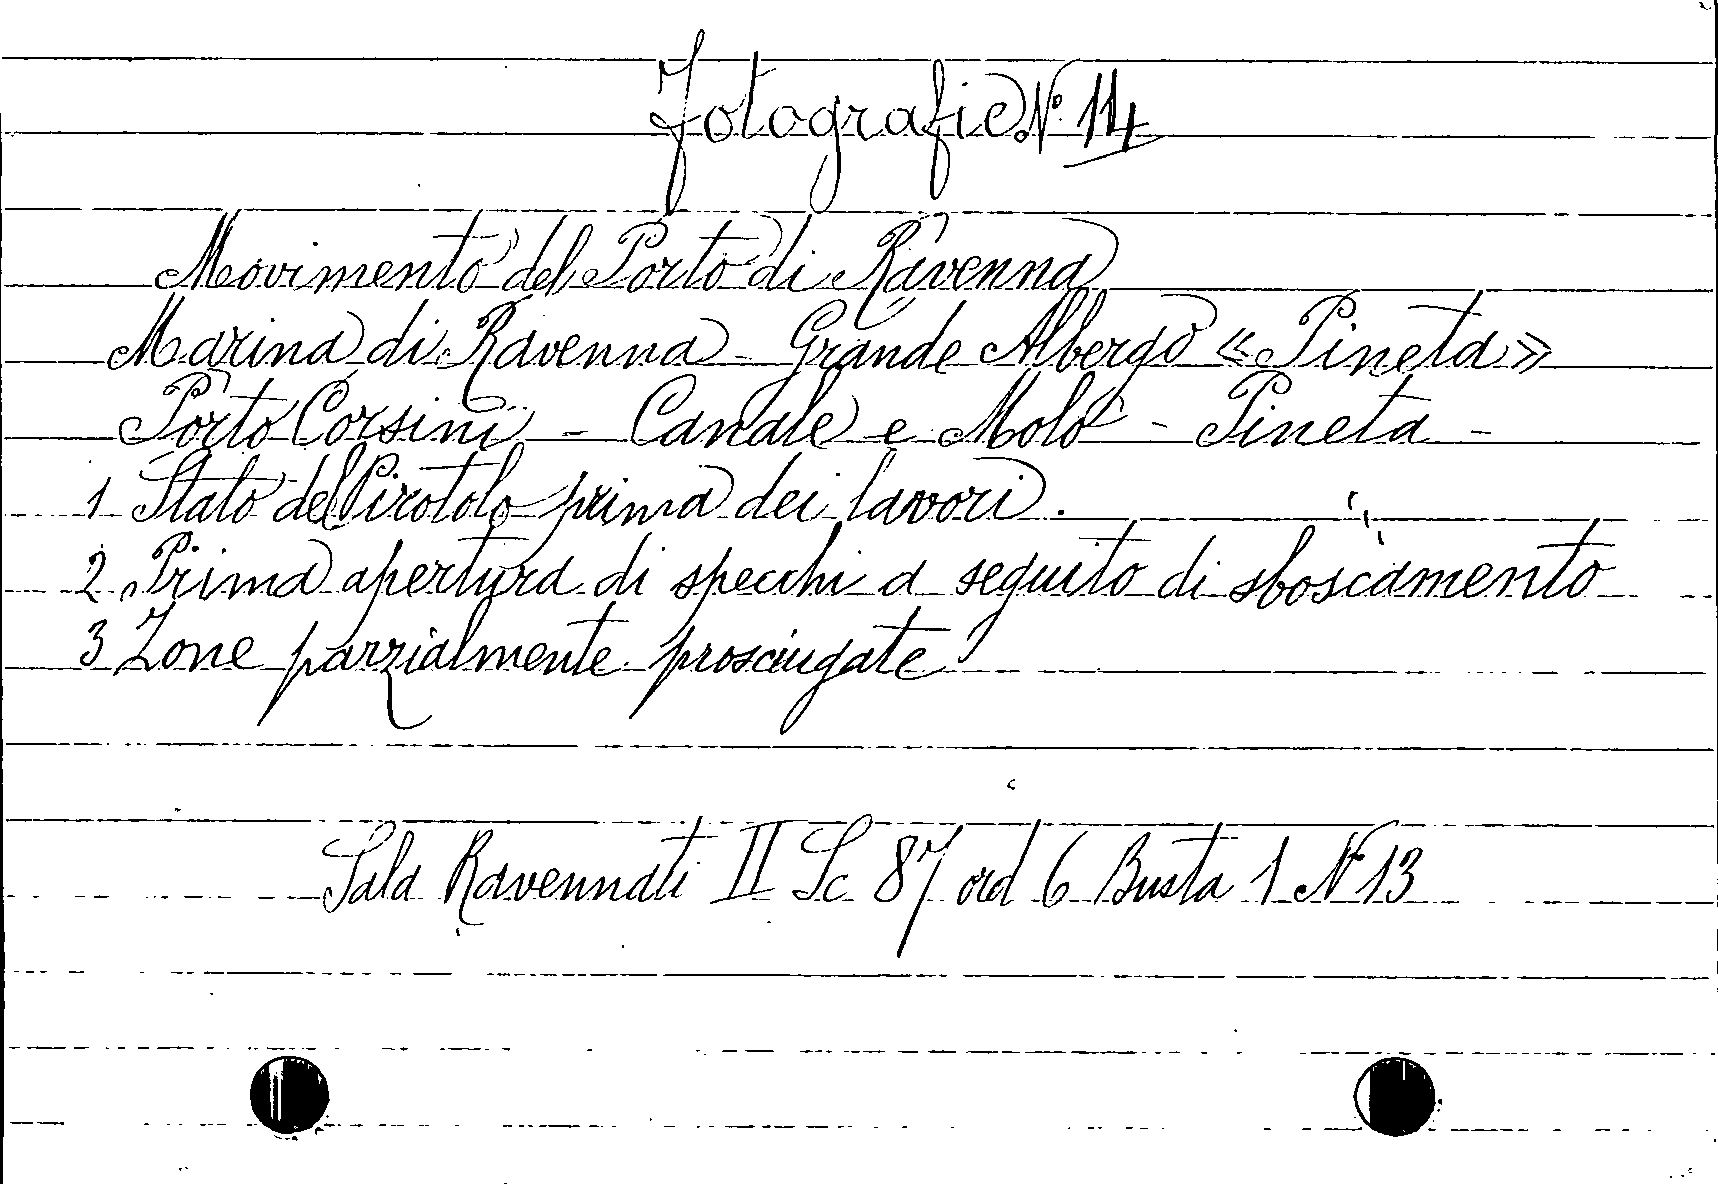 Fotografie N.° 14
Movimento del Porto di Ravenna
Marina di Ravenna - Grande Albergo « Pineta »
Porto Corsini - Canale e Molo - Pineta -
1 Stato del Pirotolo prima dei lavori.
2 Prima apertura di specchi a seguito di sboscamento
3 Zone parzialmente prosciugate
Sala Ravennati II Sc 87 ord 6 Busta 1 N 13